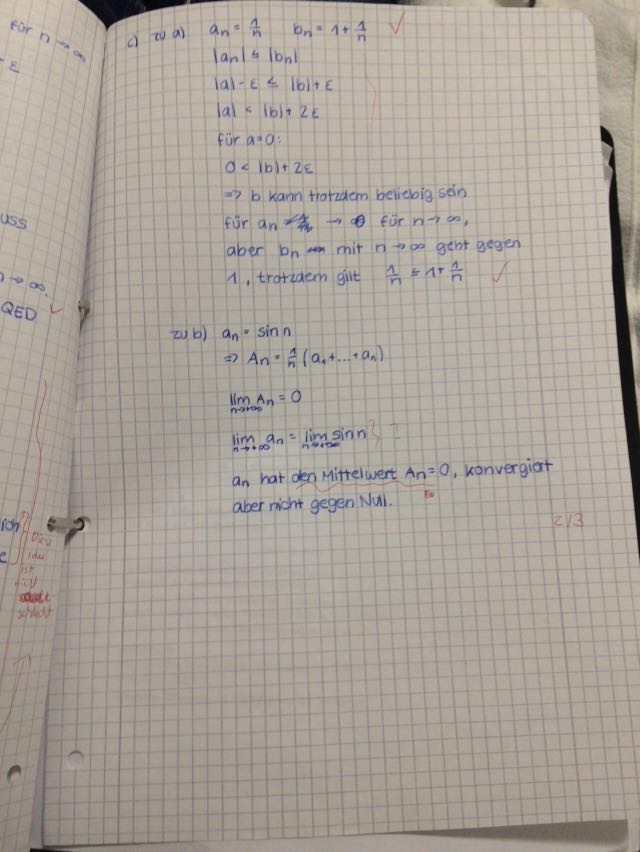 für n → ∞
ε
uss
n → ∞.
QED
lich
e
Diese
Idee
ist
nicht
schlecht
c) zu a) aₙ = 1/n bₙ = 1 + 1/n ✓
|aₙ| ≤ |bₙ|
|a| - ε ≤ |b| + ε
|a| < |b| + 2ε
für a=0:
0 < |b| + 2ε
=> b kann trotzdem beliebig sein
für aₙ → 0 für n → ∞,
aber bₙ mit n → ∞ geht gegen
1, trotzdem gilt 1/n ≤ 1 + 1/n ✓
zu b) aₙ = sin n
=> Aₙ = 1/n (a₁ + ... + aₙ)
lim n→∞ Aₙ = 0
lim n→+∞ aₙ = lim n→+∞ sin n
aₙ hat den Mittelwert Aₙ = 0, konvergiert
aber nicht gegen Null.
2/3